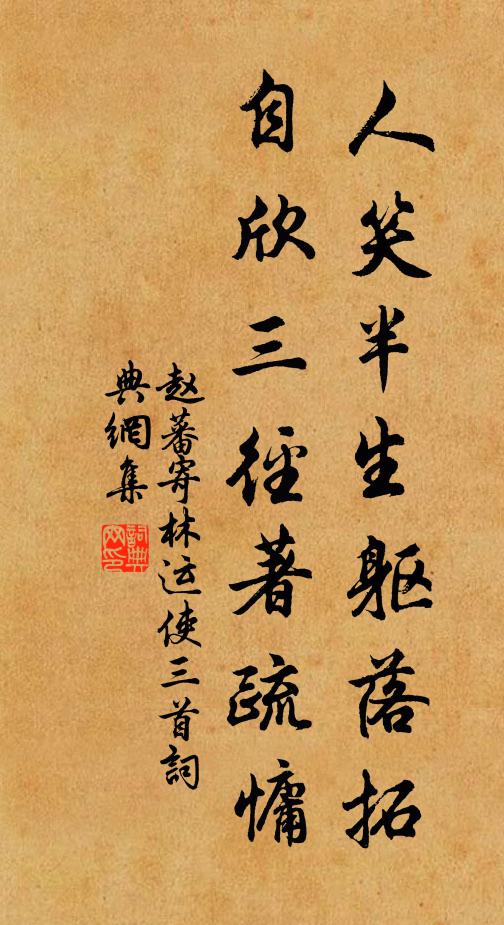 人笑半生躯落拓
自欣三徑著疏慵
赵蕃寄林运使三首詞
典網集
詞典网印